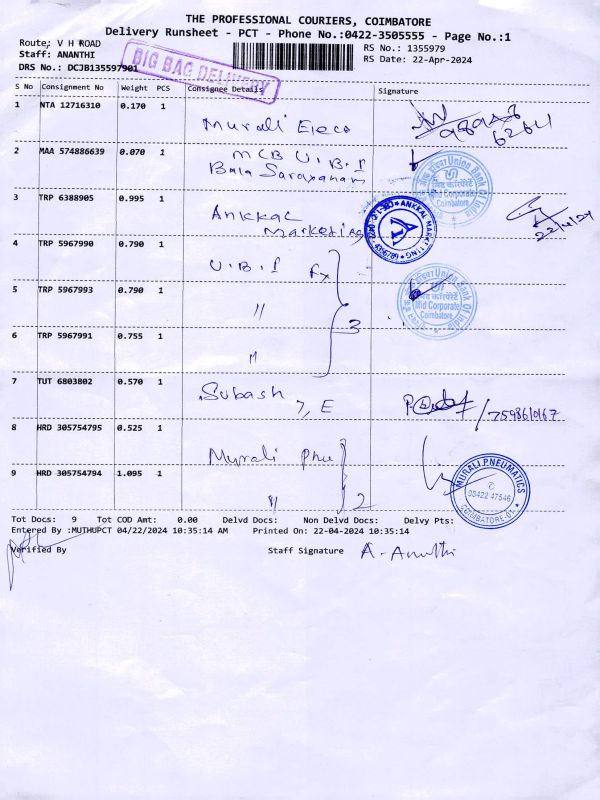 THE PROFESSIONAL COURIERS, COIMBATORE
Delivery Runsheet - PCT - Phone No.:0422-3505555 - Page No.:1
Route: V H ROAD
Staff: ANANTHI
DRS No.: DCJB135597901
RS No.: 1355979
RS Date: 22-Apr-2024
BIG BAG DELIVERY
S No Consignment No Weight PCS Consignee Details Signature
1 NTA 12716310 0.170 1 Murali Elecs
2 MAA 574886639 0.070 1 MCB U.B.I
Bala Saravanam
Union Bank Of India
Mid Corporate
Coimbatore
3 TRP 6388905 0.995 1 Ankkal
Marketing
ANKKAL MARKETING
22/4/24
4 TRP 5967990 0.790 1 U.B.I
5 TRP 5967993 0.790 1 "
3
Union Bank Of India
Mid Corporate
Coimbatore
6 TRP 5967991 0.755 1 "
7 TUT 6803802 0.570 1 Subash E
8 HRD 305754795 0.525 1 Murali Pneu
9 HRD 305754794 1.095 1 " 2
MURALI PNEUMATICS
98422 47546
COIMBATORE-01.
Tot Docs: 9 Tot COD Amt: 0.00 Delvd Docs: Non Delvd Docs: Delvy Pts:
Entered By :MUTHUPCT 04/22/2024 10:35:14 AM Printed On: 22-04-2024 10:35:14
Verified By Staff Signature A. Ananthi